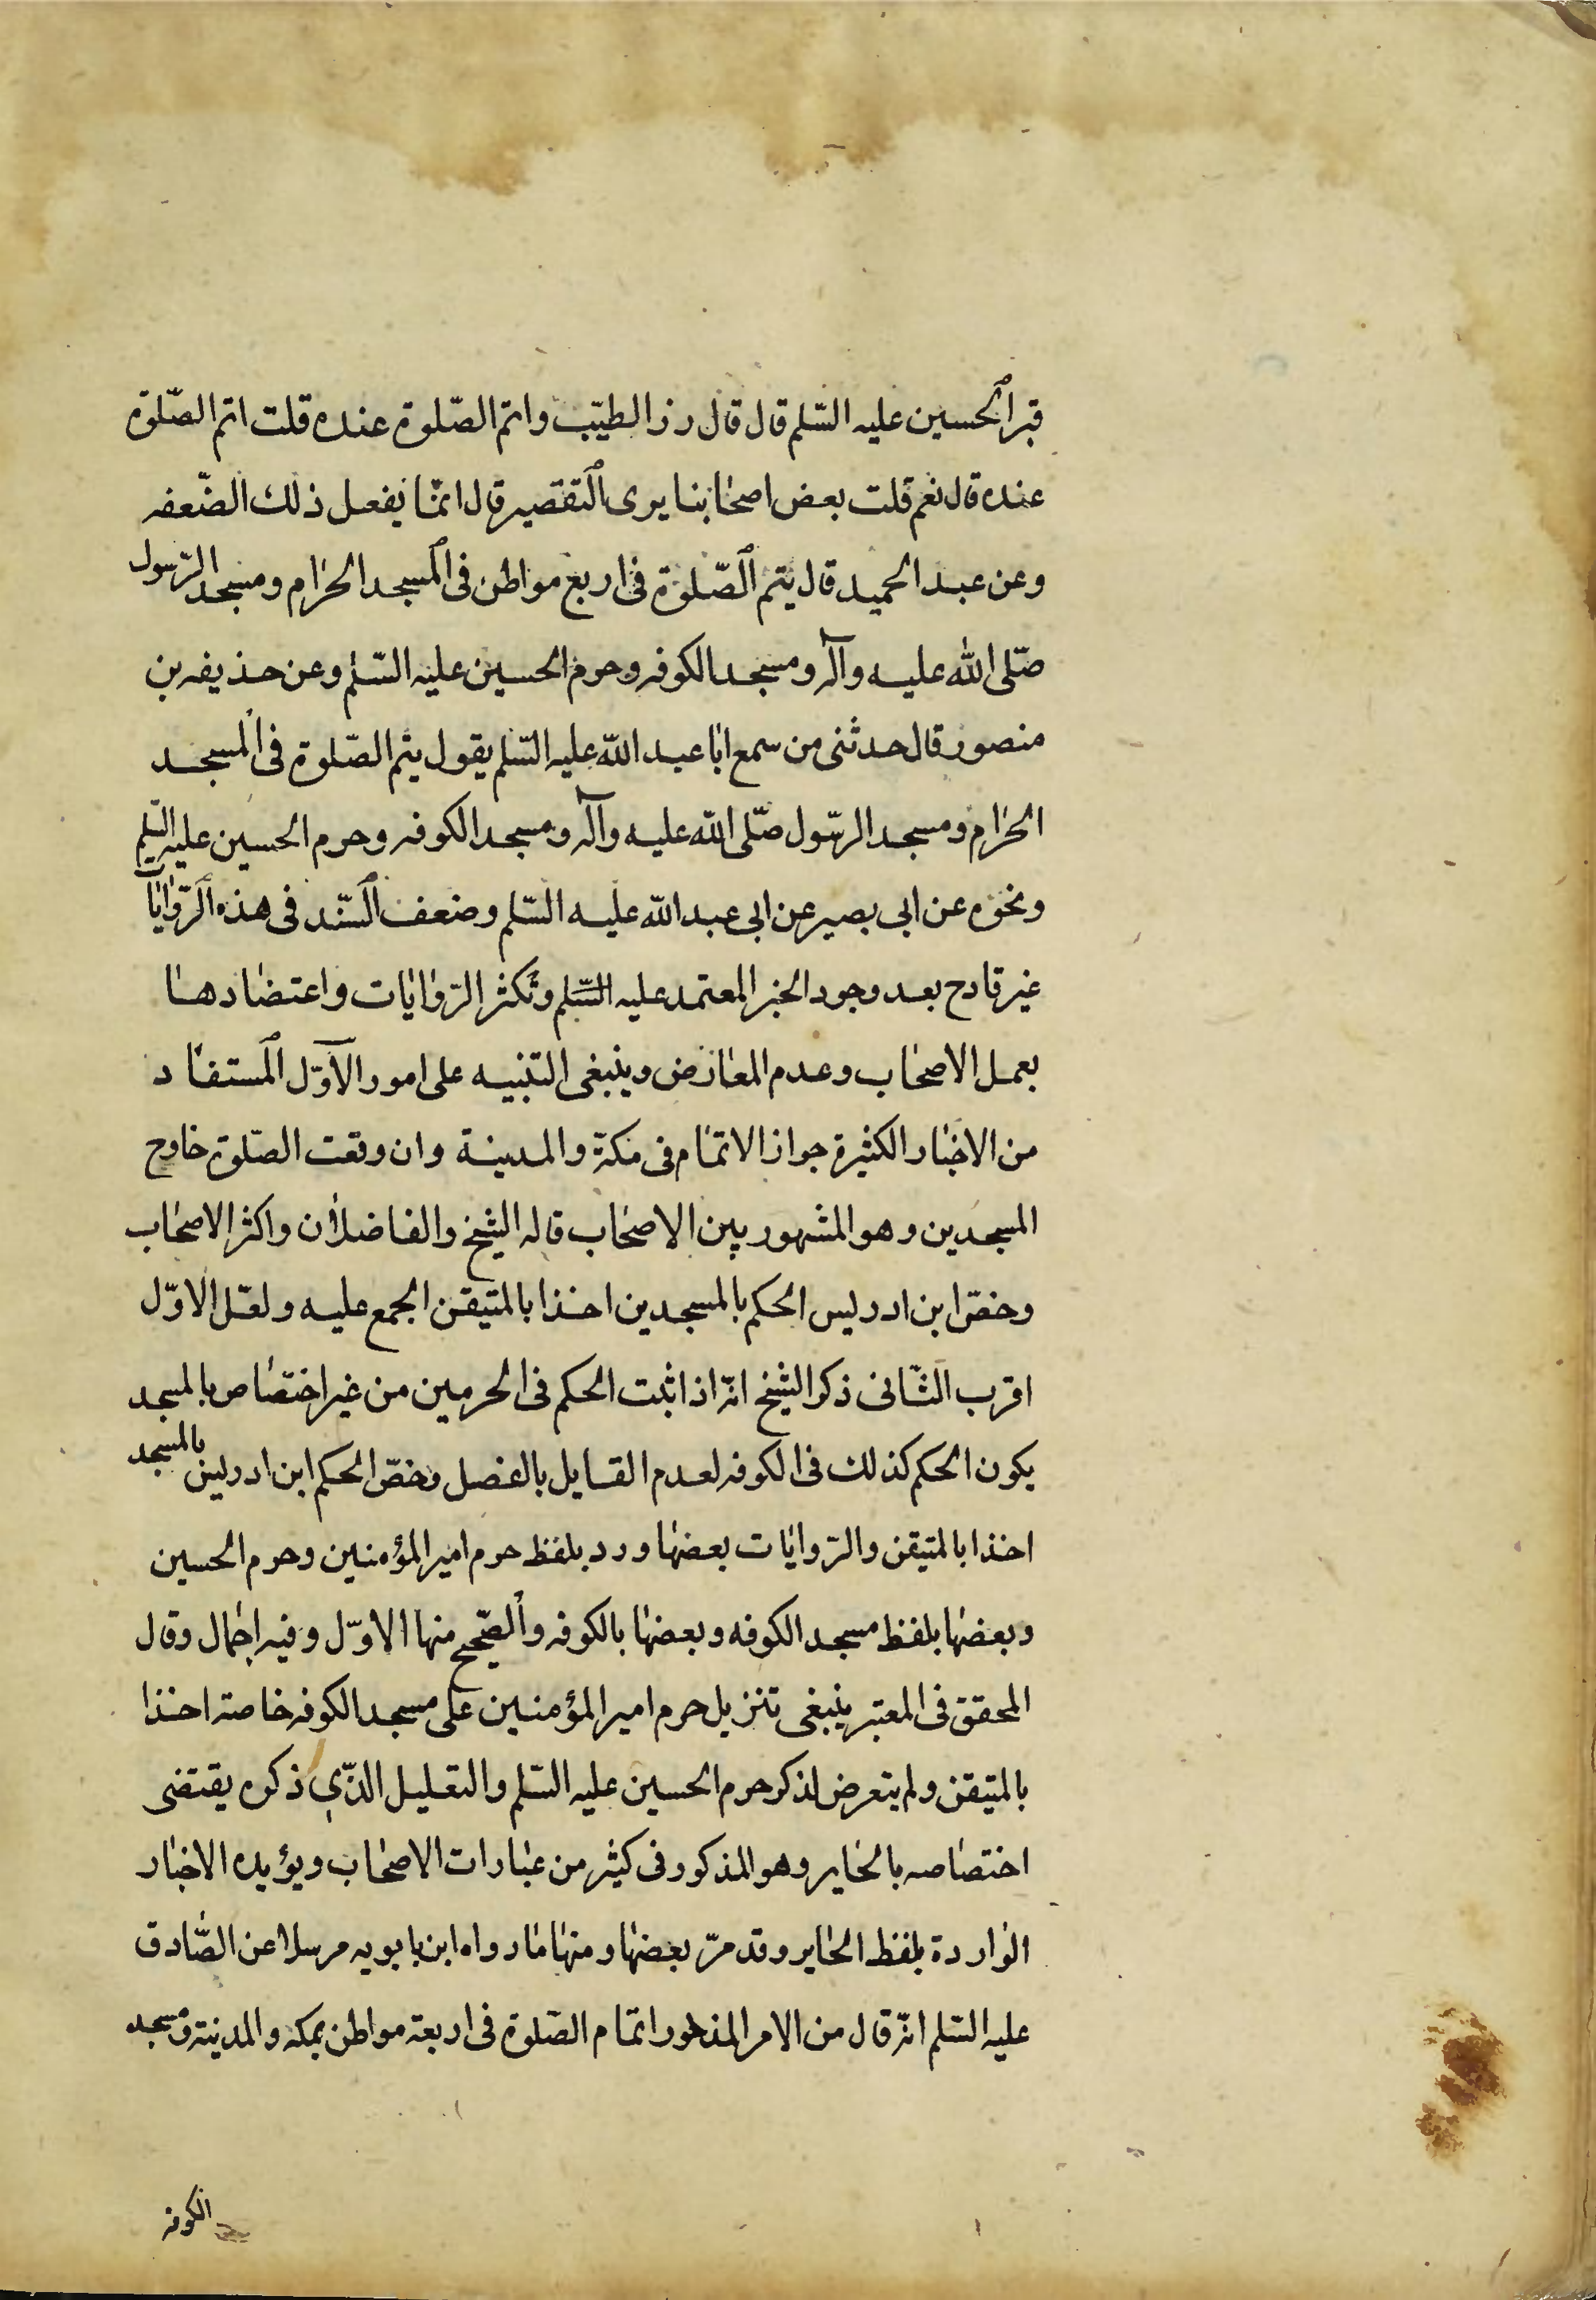 قبر الحسين عليه السّلم قال قال زر الطيّب واتمّ الصّلوة عنده قلت اتم الصّلوة
عنده قال نعم قلت بعض اصحابنا يرى التقصير قال انمّا يفعل ذلك الضّعفه
وعن عبد الحميد قال يتم الصّلوة فى اربع مواطن فى المسجد الحرام ومسجد الرّسول
صّلى الله عليه وآله ومسجد الكوفه وحرم الحسين عليه السّلم وعن حذيفه بن
منصور قال حدثنى من سمع ابا عبد الله عليه السّلم يقول يتم الصّلوة فى المسجد
الحرام ومسجد الرسّول صّلى الله عليه وآله ومسجد الكوفه وحرم الحسين عليه السّلم
ونحوه عن ابى بصير عن ابى عبد الله عليه السّلم وضعف السّند فى هذه الرّوايات
غير قادح بعد وجود الخبر المعتمد عليه السّلم وتكثر الرّوايات واعتضادها
بعمل الاصحاب وعدم المعارض وينبغى التنبيه على امور الاوّل المستفاد
من الاخبار الكثيرة جواز الاتمام فى مكة والمدينة وان وقعت الصّلوة خارج
المسجدين وهو المشهور بين الاصحاب قاله الشيخ والفاضلان واكثر الاصحاب
وخصّ ابن ادريس الحكم بالمسجدين اخذا بالمتيقن المجمع عليه ولعّل الاوّل
اقرب الثّانى ذكر الشيخ انّه اذا ثبت الحكم فى الحرمين من غير اختصاص بالمسجد
يكون الحكم كذلك فى الكوفه لعدم القايل بالفصل وخصّ الحكم ابن ادريس بالمسجد
اخذا بالمتيقن والرّوايات بعضها ورد بلفظ حرم امير المؤمنين وحرم الحسين
وبعضها بلفظ مسجد الكوفه وبعضها بالكوفه والصّحيح منها الاوّل وفيه اجمال وقال
المحقق فى المعتبر ينبغى تنزيل حرم امير المؤمنين على مسجد الكوفه خاصة اخذا
بالمتيقن ولم يتعرض لذكر حرم الحسين عليه السّلم والتعليل الذّي ذكره يقتضى
اختصاصه بالحاير وهو المذكور فى كثير من عبارات الاصحاب ويؤيده الاخبار
الواردة بلفظ الحاير وقد مرّ بعضها ومنها ما رواه ابن بابويه مرسلا عن الصّادق
عليه السّلم انّه قال من الامر المذخور اتمام الصّلوة فى اربعة مواطن بمكه والمدينة ومسجد
الكوفه